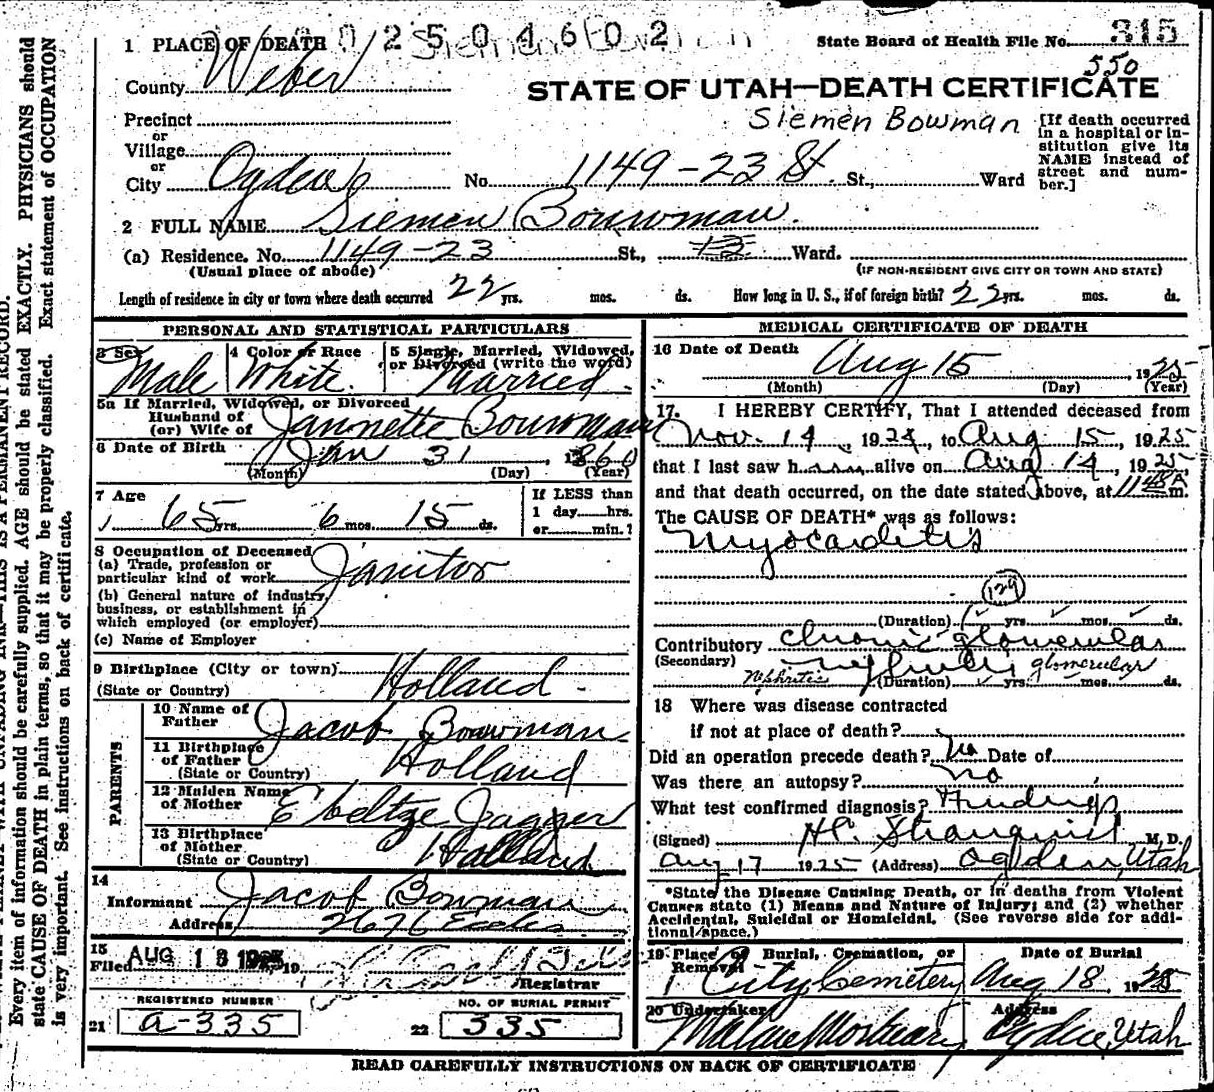 1 PLACE OF DEATH 0 2 5 0 4 6 0 2 Siemen Bowman State Board of Health File No. 315
County Weber 550
STATE OF UTAH—DEATH CERTIFICATE
Siemen Bowman
Precinct
or
Village
or
City Ogden No. 1149-23 St St., Ward
[If death occurred
in a hospital or in-
stitution give its
NAME instead of
street and num-
ber.]
2 FULL NAME Siemen Bouwman.
(a) Residence. No. 1149-23 St., Ward.
(Usual place of abode)
(IF NON-RESIDENT GIVE CITY OR TOWN AND STATE)
Length of residence in city or town where death occurred 22 yrs. mos. ds. How long in U. S., if of foreign birth? 22 yrs. mos. ds.
PERSONAL AND STATISTICAL PARTICULARS
3 Sex Male
4 Color or Race White.
5 Single, Married, Widowed,
or Divorced (write the word)
Married.
5a If Married, Widowed, or Divorced
Husband of
(or) Wife of Jannette Bouwman
6 Date of Birth Jan 31 1860
(Month) (Day) (Year)
7 Age
65 yrs. 6 mos. 15 ds.
If LESS than
1 day hrs.
or min.?
8 Occupation of Deceased
(a) Trade, profession or
particular kind of work Janitor
(b) General nature of industry,
business, or establishment in
which employed (or employer)
(c) Name of Employer
9 Birthplace (City or town)
(State or Country) Holland.
PARENTS
10 Name of
Father Jacob Bouwman
11 Birthplace
of Father
(State or Country) Holland
12 Maiden Name
of Mother Ebeltze Jagger
13 Birthplace
of Mother
(State or Country) Holland
14
Informant Jacob Bowman
Address 2676 Eccles
15
Filed AUG 18 1925 19
Registrar
REGISTERED NUMBER
21 a-335
NO. OF BURIAL PERMIT
22 335
MEDICAL CERTIFICATE OF DEATH
16 Date of Death Aug 15 1925
(Month) (Day) (Year)
17. I HEREBY CERTIFY, That I attended deceased from
Nov. 14, 1924, to Aug 15, 1925
that I last saw him alive on Aug 14, 1925,
and that death occurred, on the date stated above, at 11 45 A m.
The CAUSE OF DEATH* was as follows:
Myocarditis
129
(Duration) yrs. mos. ds.
Contributory chronic glomerular
(Secondary) Nephritis glomerular
Nephritis (Duration) yrs. mos. ds.
18 Where was disease contracted
if not at place of death?
Did an operation precede death? No Date of
Was there an autopsy? no
What test confirmed diagnosis? Findings
(Signed) H.C. Stranquist M. D.
Aug 17 1925 (Address) Ogden, Utah
*State the Disease Causing Death, or in deaths from Violent
Causes state (1) Means and Nature of Injury; and (2) whether
Accidental, Suicidal or Homicidal. (See reverse side for addi-
tional space.)
19 Place of Burial, Cremation, or
Removal
City Cemetery
Date of Burial
Aug 18 1925
20 Undertaker
Mortuary
Address
Ogden, Utah
READ CAREFULLY INSTRUCTIONS ON BACK OF CERTIFICATE
THIS IS A PERMANENT RECORD.
Every item of information should be carefully supplied. AGE should be stated EXACTLY. PHYSICIANS should
state CAUSE OF DEATH in plain terms, so that it may be properly classified. Exact statement of OCCUPATION
is very important. See instructions on back of certificate.